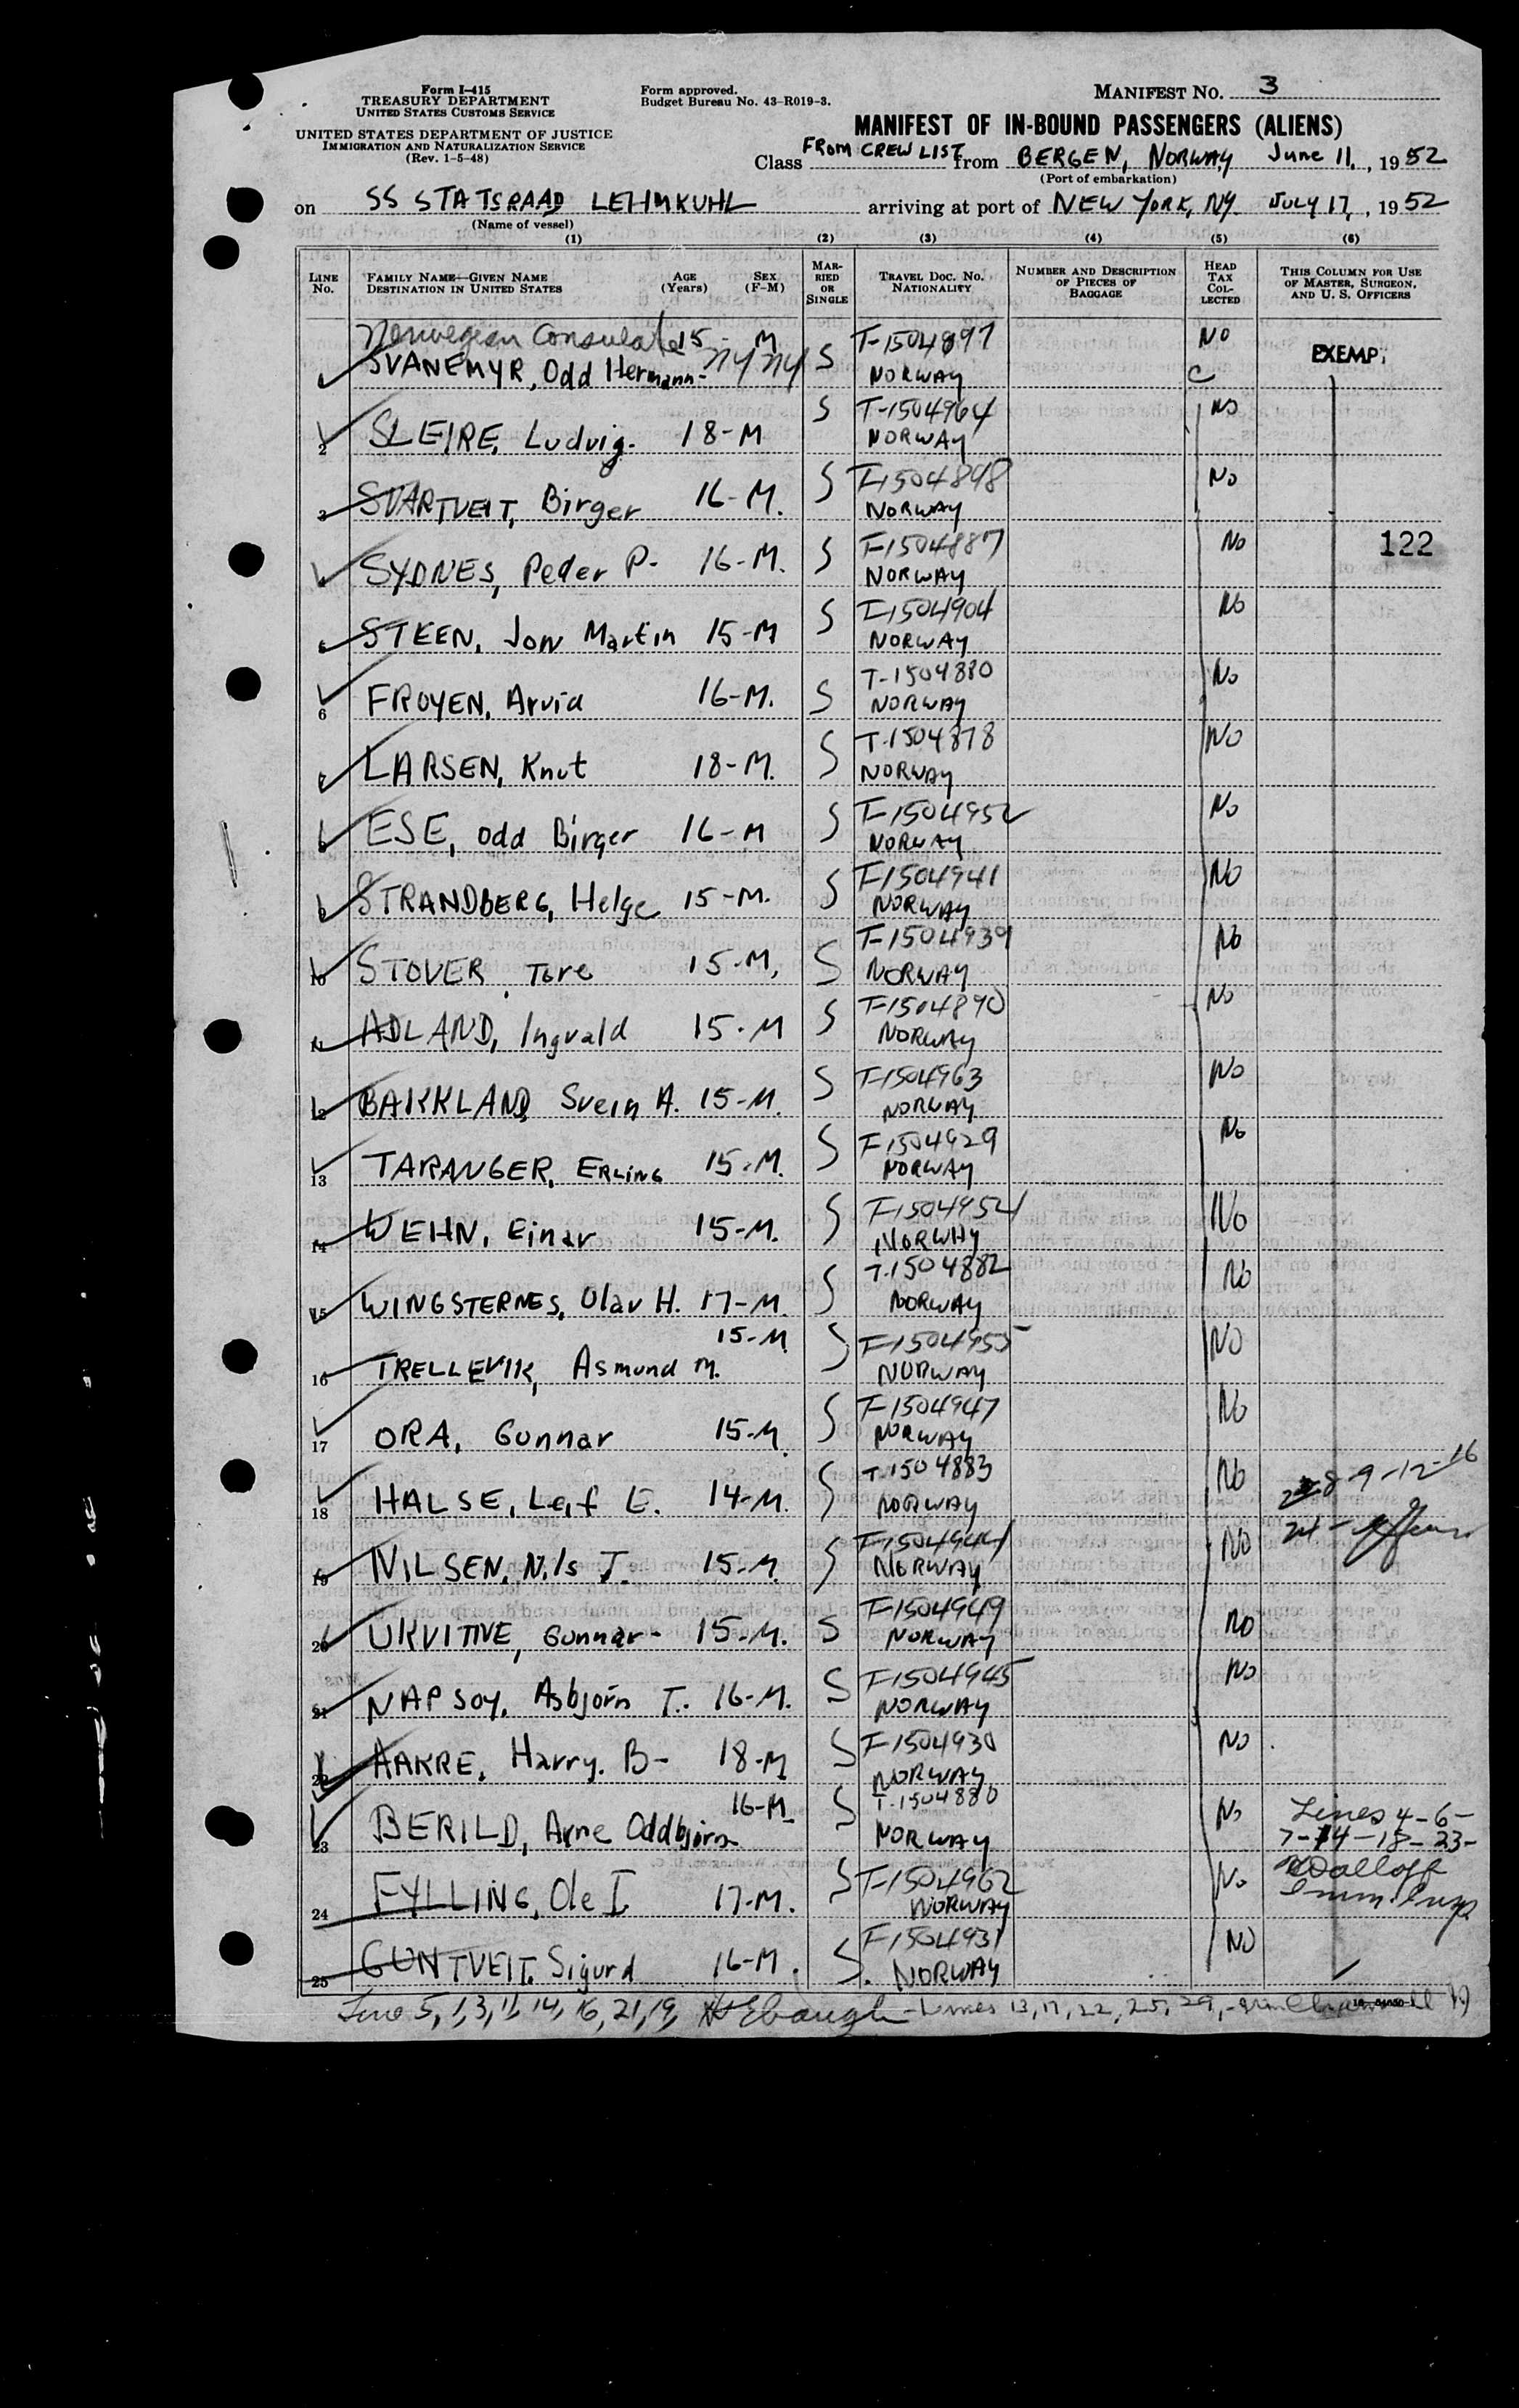 Form I-415
TREASURY DEPARTMENT
UNITED STATES CUSTOMS SERVICE
UNITED STATES DEPARTMENT OF JUSTICE
IMMIGRATION AND NATURALIZATION SERVICE
(Rev. 1-5-48)
Form approved.
Budget Bureau No. 43-R019-3.
MANIFEST NO. 3
MANIFEST OF IN-BOUND PASSENGERS (ALIENS)
Class FROM CREW LIST from BERGEN, NORWAY June 11, 1952
(Port of embarkation)
on SS STATSRAAD LEHMKUHL arriving at port of NEW YORK, NY JULY 17, 1952
(Name of vessel)
(1) (2) (3) (4) (5) (6)
LINE NO. FAMILY NAME—GIVEN NAME DESTINATION IN UNITED STATES AGE (Years) SEX (F-M) MARRIED OR SINGLE TRAVEL DOC. NO. NATIONALITY NUMBER AND DESCRIPTION OF PIECES OF BAGGAGE HEAD TAX COLLECTED THIS COLUMN FOR USE OF MASTER, SURGEON, AND U. S. OFFICERS
Norwegian Consulate 15 - M T-1504897 NO
SVANEMYR, Odd Hermann - NY NY S NORWAY C EXEMP.
S T-1504964 NO
2 SLEIRE, Ludvig. 18-M NORWAY
S T-1504898 NO
3 SVARTVEIT, Birger 16-M. NORWAY
122
SYDNES, Peder P- 16-M. S T-1504887 NORWAY No
5 STEEN, Jon Martin 15-M S T-1504904 NORWAY No
6 FROYEN, Arvid 16-M. S T-1504880 NORWAY No
7 LARSEN, Knut 18-M. S T-1504878 NORWAY NO
ESE, Odd Birger 16-M S T-1504952 NORWAY No
9 STRANDBERG, Helge 15-M. S T-1504941 NORWAY NO
10 STOVER, Tore 15-M, S T-1504939 NORWAY No
11 ADLAND, Ingvald 15-M S T-1504890 NORWAY No
12 BAKKLAND Svein A. 15-M. S T-1504963 NORWAY No
13 TARANGER, ERLING 15-M. S T-1504929 NORWAY No
14 WEHN, Einar 15-M. S T-1504954 NORWAY No
15 WINGSTERNES, Olav H. 17-M. S T-1504882 NORWAY No
16 TRELLEVIK, Asmund M. 15-M S T-1504955 NORWAY NO
17 ORA, Gunnar 15-M. S T-1504947 NORWAY No
18 HALSE, Leif E. 14-M. S T-1504883 NORWAY NO
8-9-12-16
24 -
19 NILSEN, Nils J. 15-M. S T-1504944 NORWAY NO
20 UKVITNE, Gunnar- 15-M. S T-1504949 NORWAY NO
21 NAPSOY, Asbjorn T. 16-M. S T-1504945 NORWAY No
22 AAKRE, Harry. B- 18-M S T-1504930 NORWAY NO
23 BERILD, Arne Oddbjorn 16-M S T-1504880 NORWAY No
Lines 4-6-
7-14-18-23-
24 FYLLING, Ole I. 17-M. S T-1504962 NORWAY No
Imm. Insp
25 GUNTVEIT, Sigurd 16-M. S. T-1504931 NORWAY NO
Line 5, 1, 3, 11, 14, 16, 21, 19, Ebaugh - Lines 13, 17, 22, 25, 29,